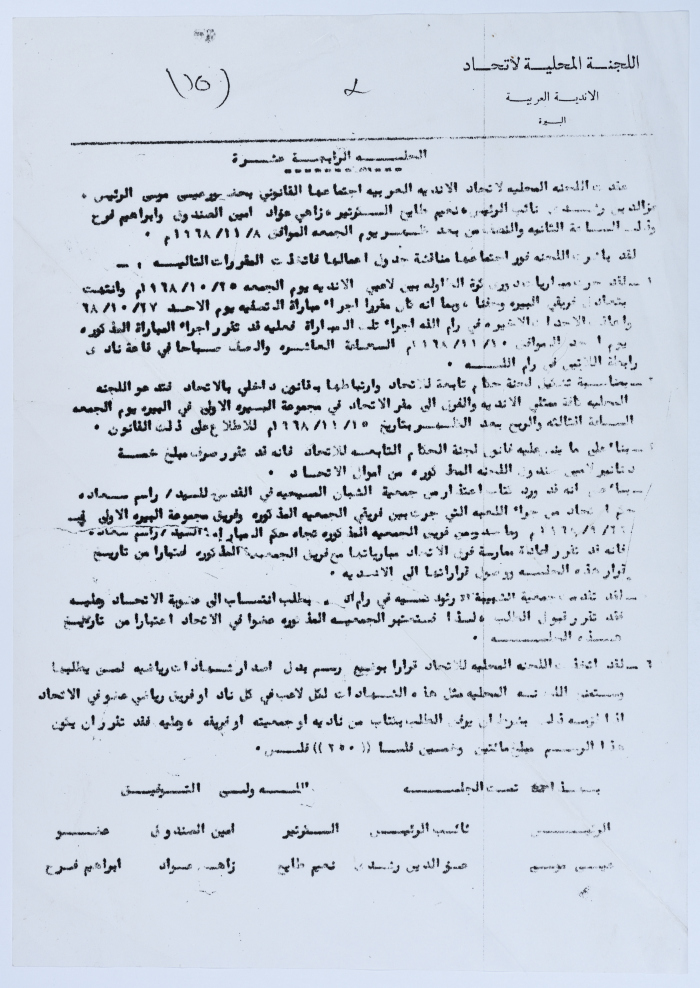 اللجنـة المحليـة لاتحـاد
الاندية العربية
البيرة
(١٥)
الجلســه الرابعـة عشـرة
عقدت اللجنه المحليه لاتحاد الانديه العربيه اجتماعها القانوني بحضور عيسى موسى الرئيس ٠
عزالدين رشدي نائب الرئيس، نعيم طايع السكرتير، زاهي عواد امين الصندوق وابراهيم فرح
وذلك الساعة الثانيه والنصف من بعد ظهر يوم الجمعه الموافق ١٩٦٨/١١/٨م ٠
لقد باشرت اللجنه فور اجتماعها مناقشة جدول اعمالها فاتخذت المقررات التاليـه :ـ
١ ـ لقد جرت مباريات دوري كرة الطاوله بين لاعبي الانديه يوم الجمعه ١٩٦٨/١٠/٢٥م وانتهت
بتعادل فريقي البيره وبما انه كان مقررا اجراء مباراة التصفيه يوم الاحد ٦٨/١٠/٢٧
الاخيره في رام الله اجراء تلك المباراة فعليه قد تقرر اجراء المباراة المذكوره
يوم الموافق ١٩٦٨/١١/١٠م الساعة العاشره والنصف صباحا في قاعة نادي
رابطة اللاعبين في رام اللـه ٠
٢ ـ بمناسبة تشكيل لجنة حكام تابعة للاتحاد وارتباطها بقانون داخلي بالاتحاد فتدعو اللجنه
المحليه كافة ممثلي الانديه والفرق الى مقر الاتحاد في مجموعة البيره الاولى في البيره يوم الجمعه
الساعة الثالثه والربع بعد الظهـر بتاريخ ١٩٦٨/١١/١٥م للاطلاع على ذلك القانون ٠
بناء على ما ينص عليه قانون لجنة الحكام التابعه للاتحاد فانه قد تقرر صرف مبلغ خمسة
دنانير لامين صندوق اللجنه المذكوره من اموال الاتحاد ٠
بناء على انه قد ورد كتاب اعتذار من جمعية الشبان المسيحيه في القدس للسيد/ راسم سعاده
حكم الاتحاد من جراء اللعبه التي جرت بين فريقي الجمعيه المذكوره وفريق مجموعة البيره الاولى
وما صدر من فريق الجمعيه المذكوره تجاه حكم المباراة السيد/ راسم سعاده
فانه قد تقرر اعادة ممارسة فرق الاتحاد مبارياتها مع فريق الجمعية المذكوره اعتبارا من تاريخ
قرار هذه الجلسه ووصول قراراتها الى الانديه ٠
لقد تقدمت جمعية الشبيبة الارثوذكسيه في رام الله بطلب انتساب الى عضوية الاتحاد وعليه
فقد تقرر قبول الطلب لـذا فستعتبر الجمعيه المذكوره عضوا في الاتحاد اعتبارا من تاريخ
هـذه الجلسـه ٠
٦ ـ لقد اتخذت اللجنه المحليه للاتحاد قرارا بوضع رسم بدل اصدار شهادات رياضيه لمن يطلبها
وستمنح اللجنـه المحليه مثل هذه الشهادات لكل لاعب في كل ناد او فريق رياضي عضو في الاتحاد
اذا لزمه ذلك بشرط ان يرفق الطلب بكتاب من ناديه او جمعيته او فريقه ، وعليه فقد تقرر ان يكون
هذا الرسـم مبلغ مائتين وخمسين فلسا (( ٢٥٠ )) فلس ٠
بهـذا اختتمت الجلسـه     واللـه ولـي التـوفيـق
الرئيس     نائب الرئيس     السكرتير     امين الصندوق     عضـو
عيسى موسى     عزالدين رشدي     نعيم طايع     زاهي عواد     ابراهيم فرح